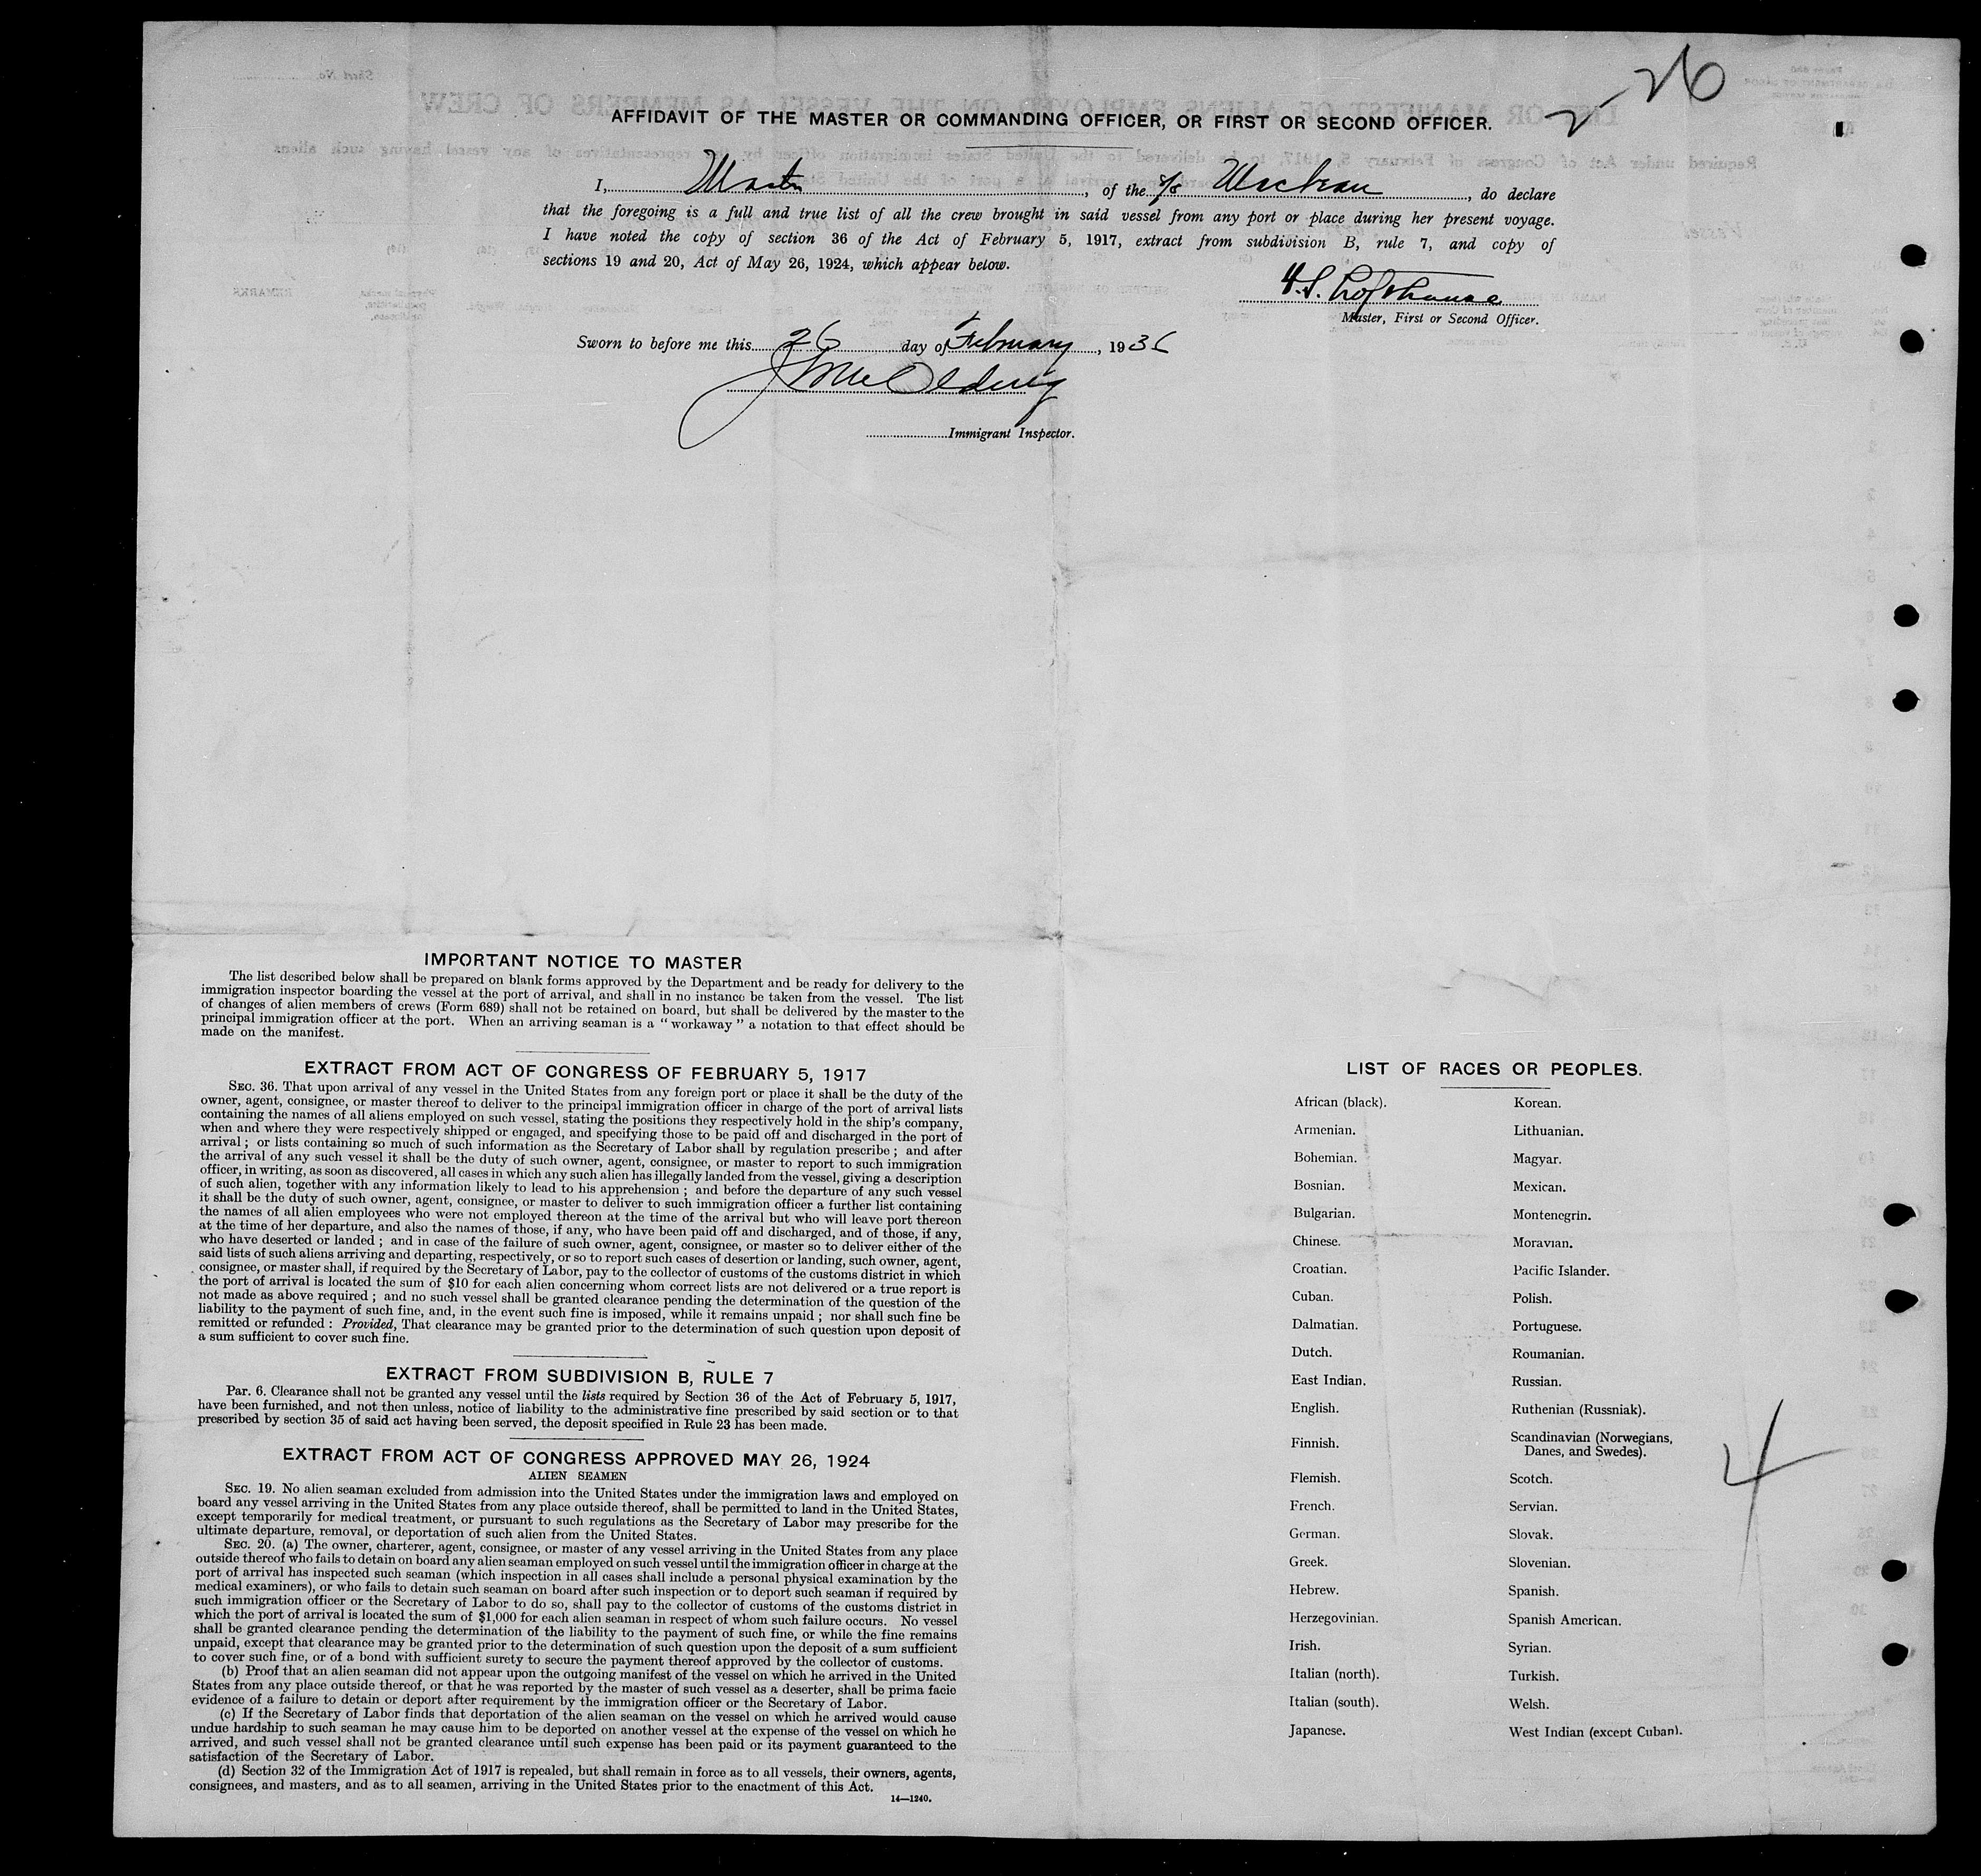 2-26
AFFIDAVIT OF THE MASTER OR COMMANDING OFFICER, OR FIRST OR SECOND OFFICER.
I, Master, of the S/S, do declare
that the foregoing is a full and true list of all the crew brought in said vessel from any port or place during her present voyage.
I have noted the copy of section 36 of the Act of February 5, 1917, extract from subdivision B, rule 7, and copy of
sections 19 and 20, Act of May 26, 1924, which appear below.
H.S. Lofthouse
Master, First or Second Officer.
Sworn to before me this 26 day of February, 193
Immigrant Inspector.
IMPORTANT NOTICE TO MASTER
The list described below shall be prepared on blank forms approved by the Department and be ready for delivery to the
immigration inspector boarding the vessel at the port of arrival, and shall in no instance be taken from the vessel. The list
of changes of alien members of crews (Form 689) shall not be retained on board, but shall be delivered by the master to the
principal immigration officer at the port. When an arriving seaman is a "workaway" a notation to that effect should be
made on the manifest.
EXTRACT FROM ACT OF CONGRESS OF FEBRUARY 5, 1917
SEC. 36. That upon arrival of any vessel in the United States from any foreign port or place it shall be the duty of the
owner, agent, consignee, or master thereof to deliver to the principal immigration officer in charge of the port of arrival lists
containing the names of all aliens employed on such vessel, stating the positions they respectively hold in the ship's company,
when and where they were respectively shipped or engaged, and specifying those to be paid off and discharged in the port of
arrival; or lists containing so much of such information as the Secretary of Labor shall by regulation prescribe; and after
the arrival of any such vessel it shall be the duty of such owner, agent, consignee, or master to report to such immigration
officer, in writing, as soon as discovered, all cases in which any such alien has illegally landed from the vessel, giving a description
of such alien, together with any information likely to lead to his apprehension; and before the departure of any such vessel
it shall be the duty of such owner, agent, consignee, or master to deliver to such immigration officer a further list containing
the names of all alien employees who were not employed thereon at the time of the arrival but who will leave port thereon
at the time of her departure, and also the names of those, if any, who have been paid off and discharged, and of those, if any,
who have deserted or landed; and in case of the failure of such owner, agent, consignee, or master so to deliver either of the
said lists of such aliens arriving and departing, respectively, or so to report such cases of desertion or landing, such owner, agent,
consignee, or master shall, if required by the Secretary of Labor, pay to the collector of customs of the customs district in which
the port of arrival is located the sum of $10 for each alien concerning whom correct lists are not delivered or a true report is
not made as above required; and no such vessel shall be granted clearance pending the determination of the question of the
liability to the payment of such fine, and, in the event such fine is imposed, while it remains unpaid; nor shall such fine be
remitted or refunded: Provided, That clearance may be granted prior to the determination of such question upon deposit of
a sum sufficient to cover such fine.
EXTRACT FROM SUBDIVISION B, RULE 7
Par. 6. Clearance shall not be granted any vessel until the lists required by Section 36 of the Act of February 5, 1917,
have been furnished, and not then unless, notice of liability to the administrative fine prescribed by said section or to that
prescribed by section 35 of said act having been served, the deposit specified in Rule 23 has been made.
EXTRACT FROM ACT OF CONGRESS APPROVED MAY 26, 1924
ALIEN SEAMEN
SEC. 19. No alien seaman excluded from admission into the United States under the immigration laws and employed on
board any vessel arriving in the United States from any place outside thereof, shall be permitted to land in the United States,
except temporarily for medical treatment, or pursuant to such regulations as the Secretary of Labor may prescribe for the
ultimate departure, removal, or deportation of such alien from the United States.
SEC. 20. (a) The owner, charterer, agent, consignee, or master of any vessel arriving in the United States from any place
outside thereof who fails to detain on board any alien seaman employed on such vessel until the immigration officer in charge at the
port of arrival has inspected such seaman (which inspection in all cases shall include a personal physical examination by the
medical examiners), or who fails to detain such seaman on board after such inspection or to deport such seaman if required by
such immigration officer or the Secretary of Labor to do so, shall pay to the collector of customs of the customs district in
which the port of arrival is located the sum of $1,000 for each alien seaman in respect of whom such failure occurs. No vessel
shall be granted clearance pending the determination of the liability to the payment of such fine, or while the fine remains
unpaid, except that clearance may be granted prior to the determination of such question upon the deposit of a sum sufficient
to cover such fine, or of a bond with sufficient surety to secure the payment thereof approved by the collector of customs.
(b) Proof that an alien seaman did not appear upon the outgoing manifest of the vessel on which he arrived in the United
States from any place outside thereof, or that he was reported by the master of such vessel as a deserter, shall be prima facie
evidence of a failure to detain or deport after requirement by the immigration officer or the Secretary of Labor.
(c) If the Secretary of Labor finds that deportation of the alien seaman on the vessel on which he arrived would cause
undue hardship to such seaman he may cause him to be deported on another vessel at the expense of the vessel on which he
arrived, and such vessel shall not be granted clearance until such expense has been paid or its payment guaranteed to the
satisfaction of the Secretary of Labor.
(d) Section 32 of the Immigration Act of 1917 is repealed, but shall remain in force as to all vessels, their owners, agents,
consignees, and masters, and as to all seamen, arriving in the United States prior to the enactment of this Act.
14—1240.
LIST OF RACES OR PEOPLES.
African (black).
Armenian.
Bohemian.
Bosnian.
Bulgarian.
Chinese.
Croatian.
Cuban.
Dalmatian.
Dutch.
East Indian.
English.
Finnish.
Flemish.
French.
German.
Greek.
Hebrew.
Herzegovinian.
Irish.
Italian (north).
Italian (south).
Japanese.
Korean.
Lithuanian.
Magyar.
Mexican.
Montenegrin.
Moravian.
Pacific Islander.
Polish.
Portuguese.
Roumanian.
Russian.
Ruthenian (Russniak).
Scandinavian (Norwegians,
Danes, and Swedes).
Scotch.
Servian.
Slovak.
Slovenian.
Spanish.
Spanish American.
Syrian.
Turkish.
Welsh.
West Indian (except Cuban).
4